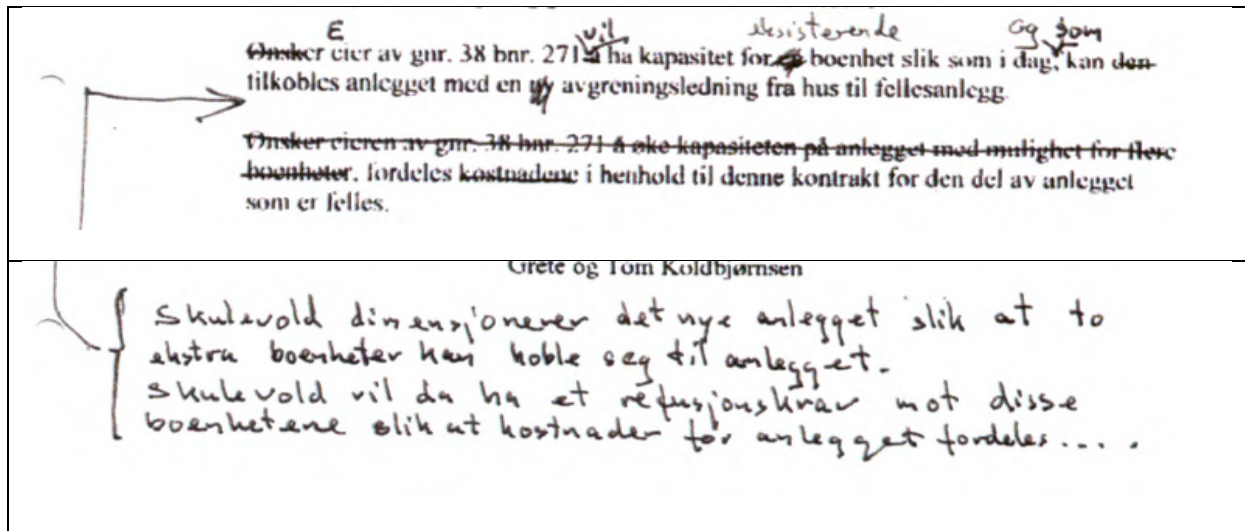 E vil eksisterende og som
Ønsker eier av gnr. 38 bnr. 271 å ha kapasitet for boenhet slik som i dag, kan den
tilkobles anlegget med en ny avgreningsledning fra hus til fellesanlegg.
Ønsker eieren av gnr. 38 bnr. 271 å øke kapasiteten på anlegget med mulighet for flere
boenheter, fordeles kostnadene i henhold til denne kontrakt for den del av anlegget
som er felles.
Grete og Tom Koldbjørnsen
Skulevold dimensjonerer det nye anlegget slik at to
ekstra boenheter kan koble seg til anlegget.
Skulevold vil da ha et refusjonskrav mot disse
boenhetene slik at kostnader for anlegget fordeles....